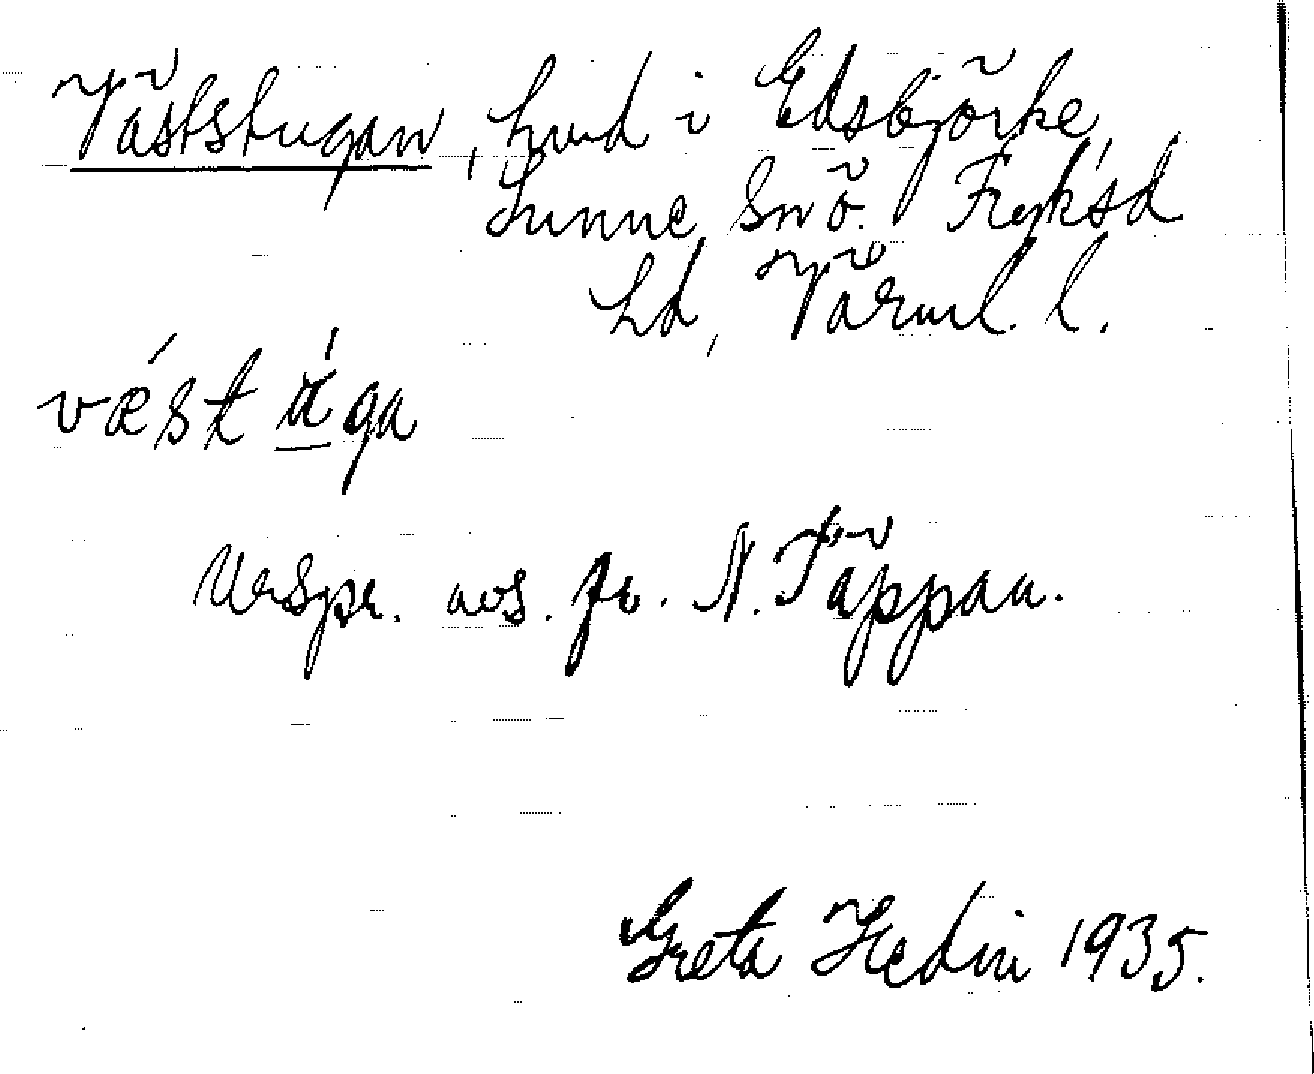 Väststugan, hmd i Edsbjörke,
Sunne sn ö. Fryksd
hd, Värml. l.
væ´st ú´ga
Urspr. avs. fr. N. Täppan.
Greta Hedin 1935.